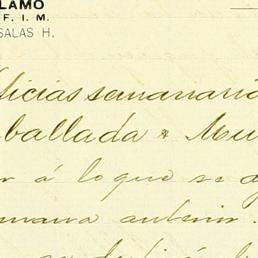 LAMO
F. I. M.
SALAS H.
ticias semanario
ballada & Mu
r á lo que se d
mana anterior.